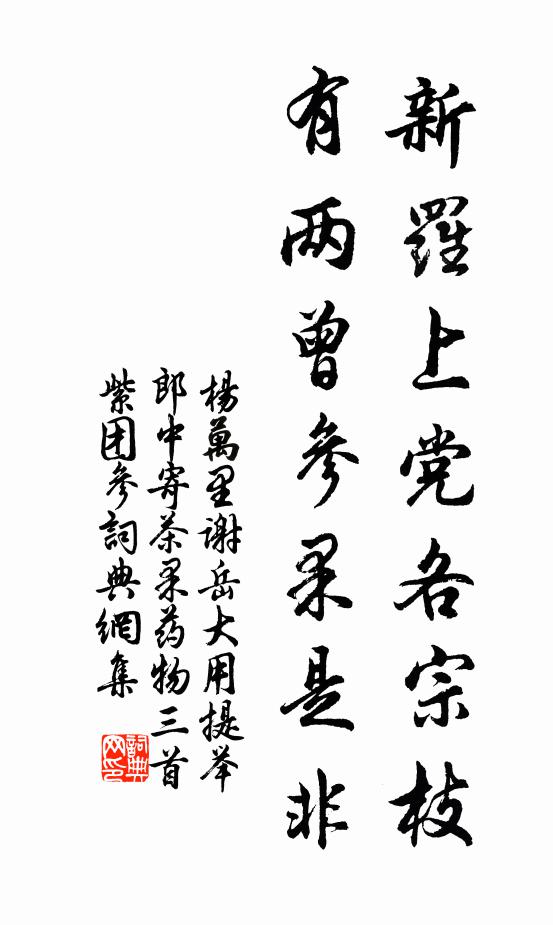 新羅上党各宗枝
有两曾参果是非
楊萬里谢岳大用提举
郎中寄茶果药物三首
紫团参詞典網集
詞典网印